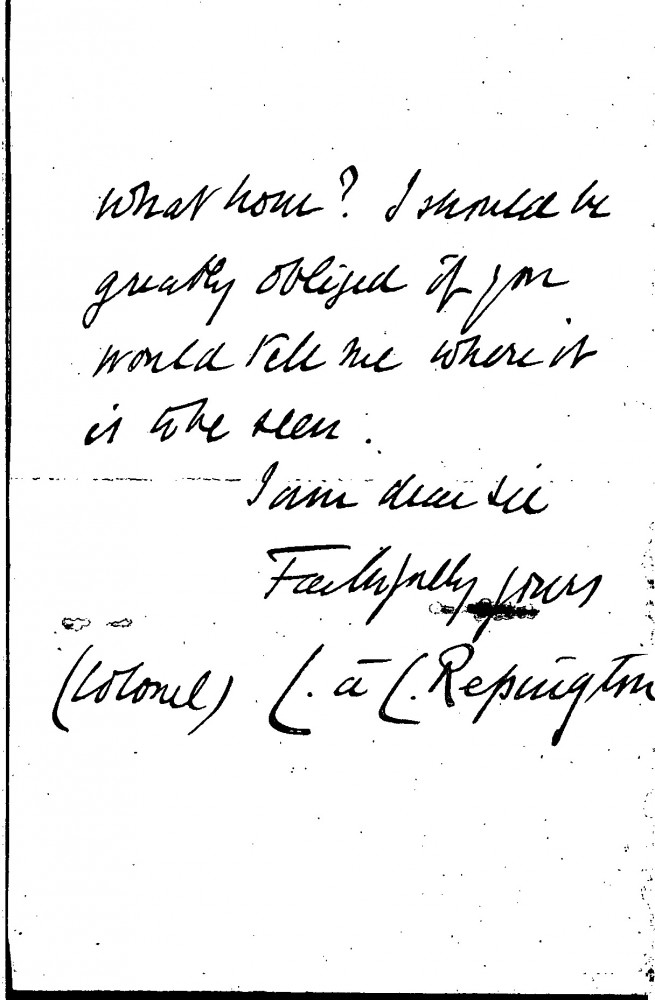 what hour? I should be
greatly obliged if you
would tell me where it
is to be seen.
I am dear sir
Faithfully yours
(Colonel) C. à C. Repington